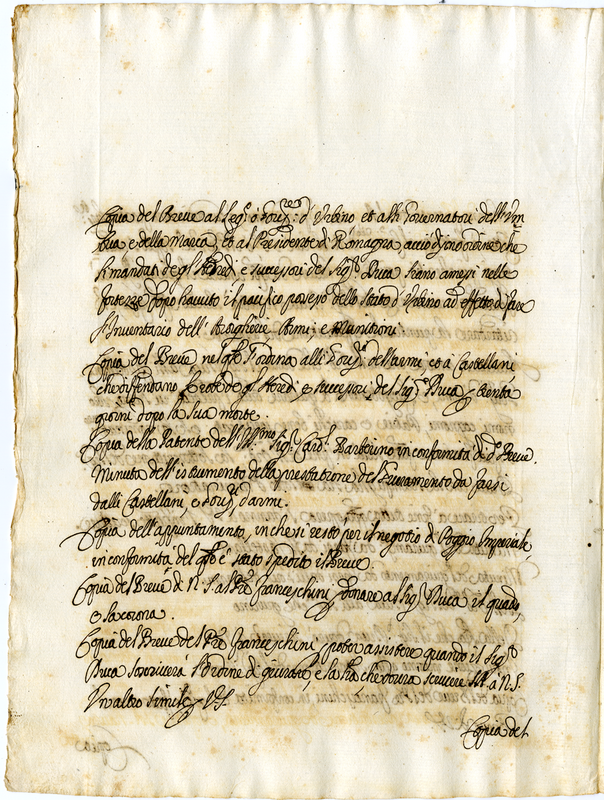 Copia del Breue al Leg.º o Gou.re d'Vrbino et alli Gouernatori dell'Vm
bria e della Marca, et al Presidente di Romagna acciò diano ordine che
li mandati degl'Heredi e successori del Sig.r Duca siano amessi nelle
fortezze dopo hauuto il pacifico possesso dello stato d'Vrbino ad effetto di fare
l'Inuentario dell'Artiglierie Armi, e Munitioni.
Copia del Breue nel q.le s'ordina alli dell'armi et à Castellani
che diffendano le robe degl'Heredi, e successori del Sig.r Duca trenta
giorni dopo la sua morte.
Copia della Patente dell'Ill.mo Sig.r Card. Barberino in conformità di d.º Breue.
Minuta dell'istrumento della prestatione del Giuramento da farsi
dalli Castellani, e d'armi.
Copia dell'appuntamento, in che si restò per il negotio di Poggio Imperiale
in conformità del q.le è stato spedito il Breue.
Copia del Breue di N. S. al P.re Franceschini, donare al Sig.r Duca il quadro,
e la corona.
Copia del Breue del P.re Franceschini poter assistere quando il Sig.r
Duca scriuerà l'Ordine di giurato, e la che dourà scriuere à N. S.
Vn altro simile
Copia del